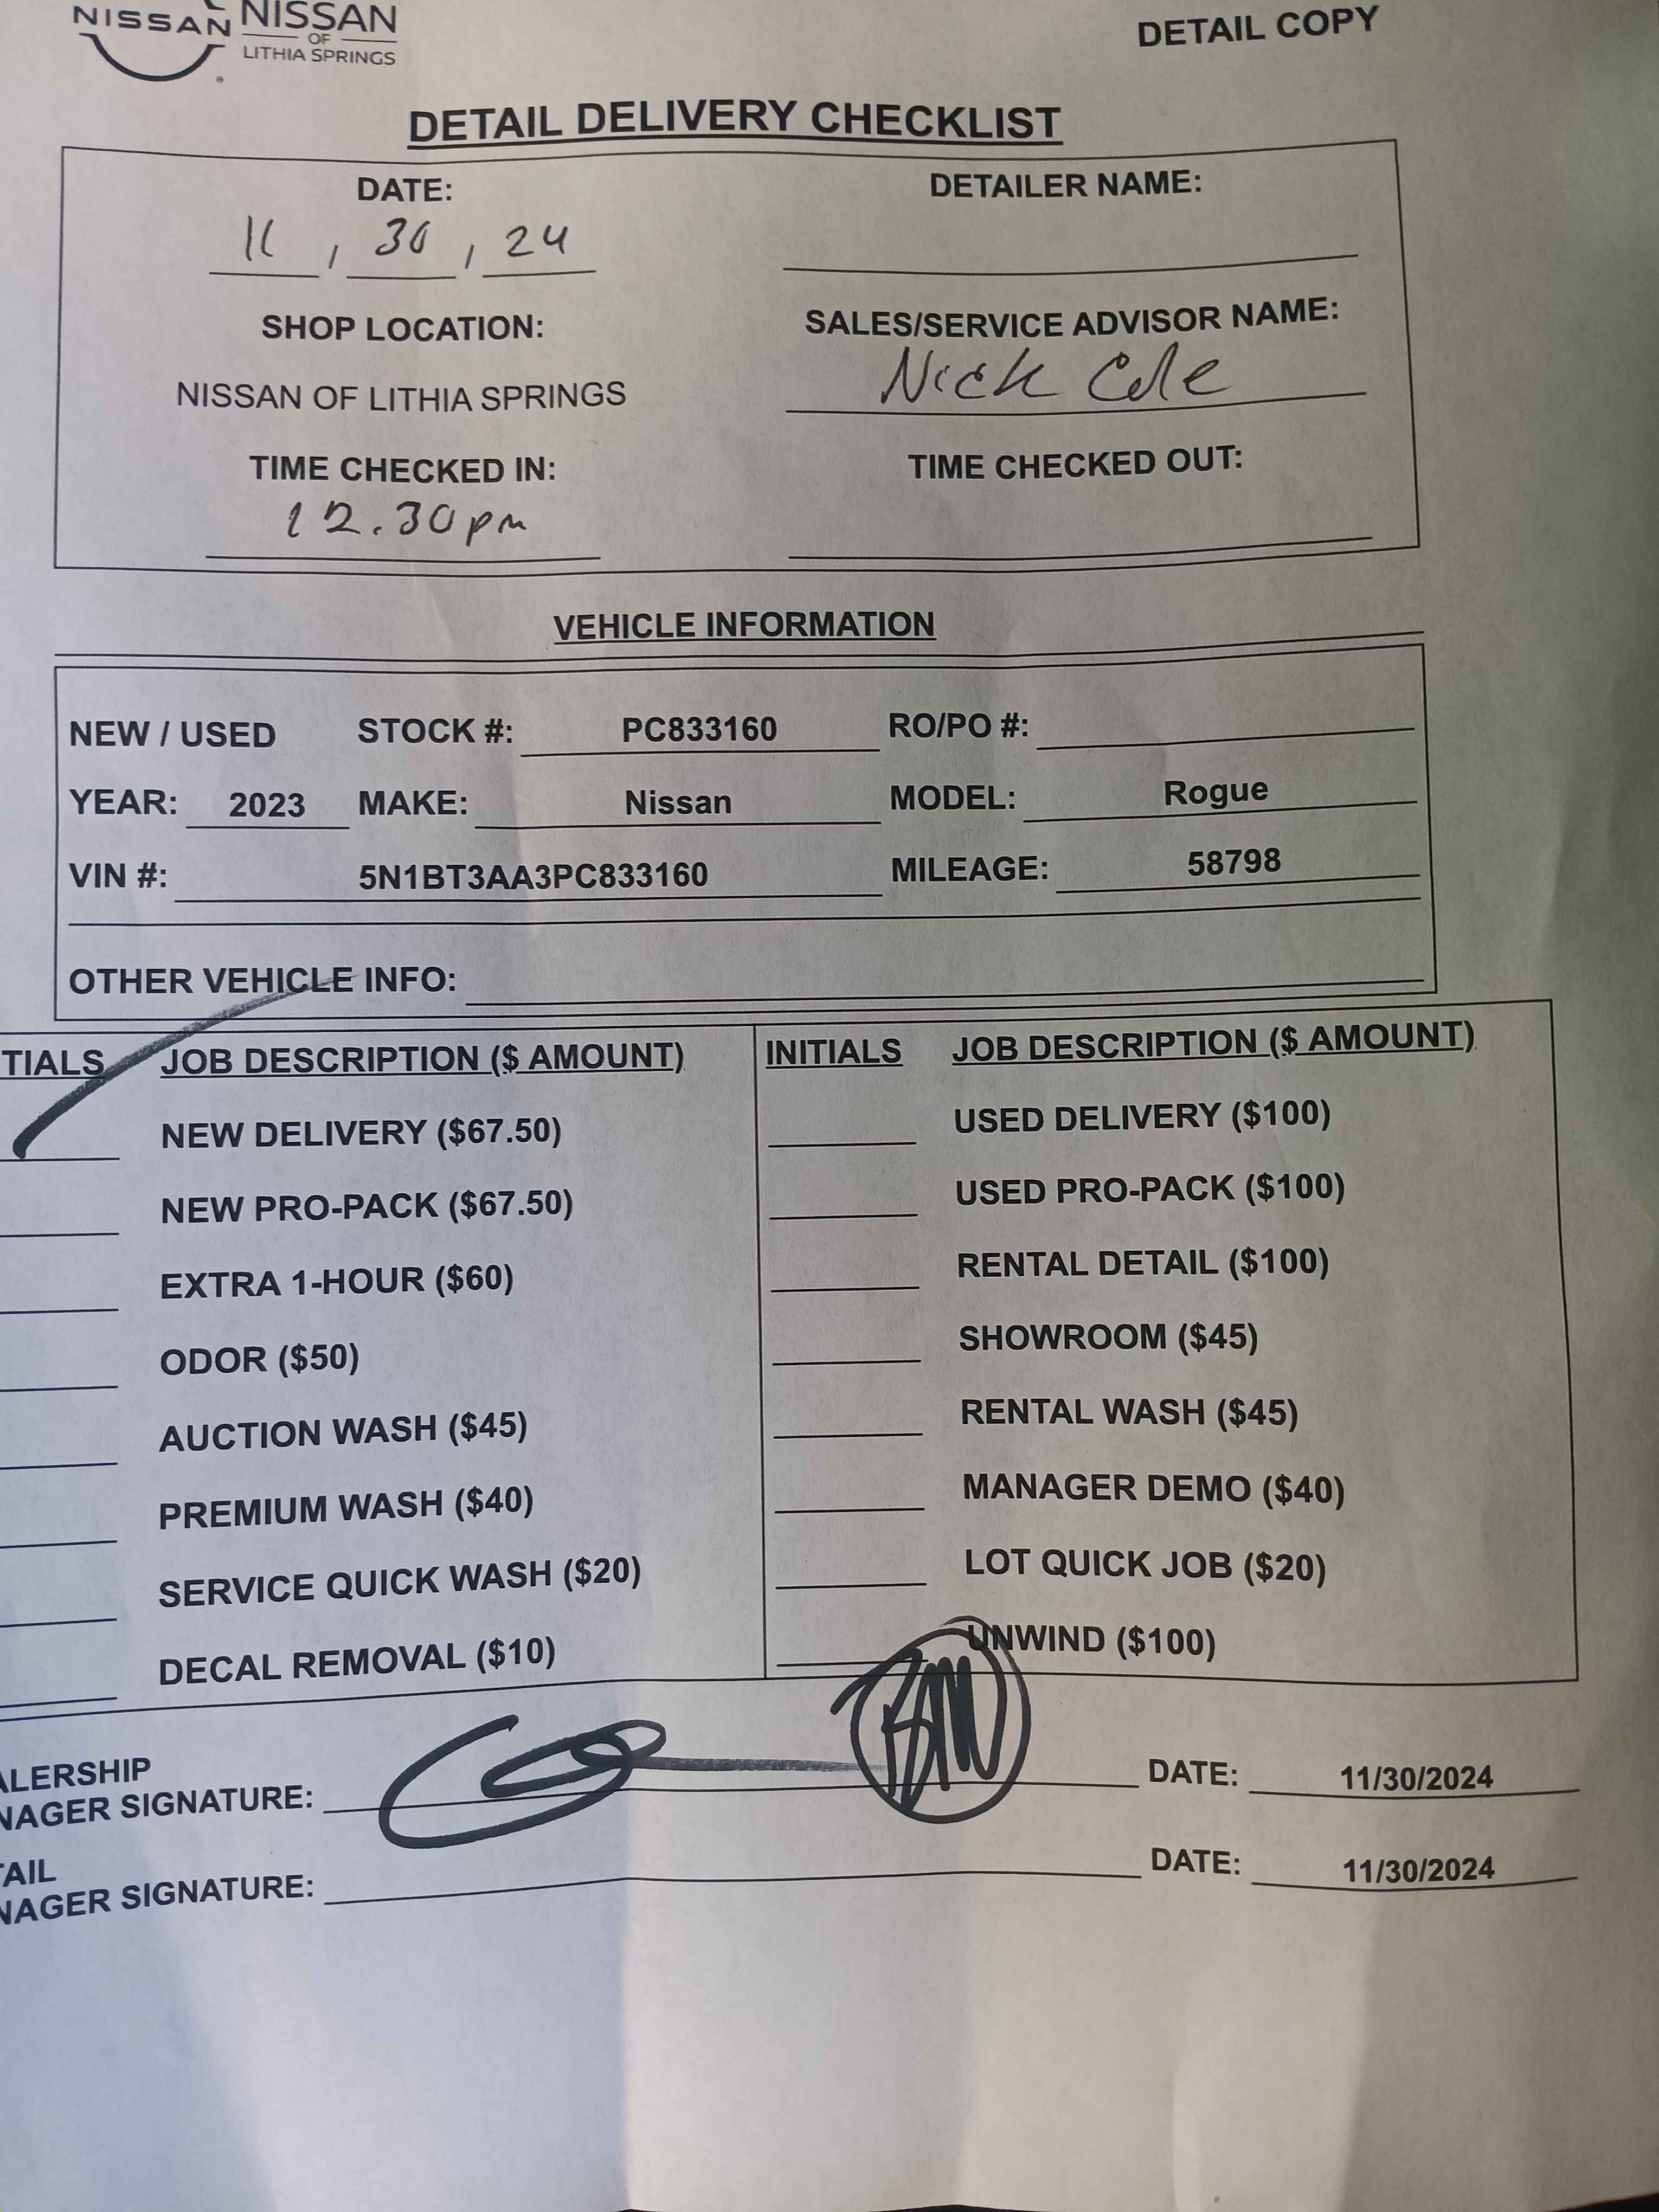 NISSAN NISSAN
OF
LITHIA SPRINGS
DETAIL COPY
DETAIL DELIVERY CHECKLIST
DATE:
11 / 30 / 24
DETAILER NAME:
SHOP LOCATION:
NISSAN OF LITHIA SPRINGS
SALES/SERVICE ADVISOR NAME:
Nick Cole
TIME CHECKED IN:
12.30pm
TIME CHECKED OUT:
VEHICLE INFORMATION
NEW / USED STOCK #: PC833160 RO/PO #:
YEAR: 2023 MAKE: Nissan MODEL: Rogue
VIN #: 5N1BT3AA3PC833160 MILEAGE: 58798
OTHER VEHICLE INFO:
TIALS JOB DESCRIPTION ($ AMOUNT) INITIALS JOB DESCRIPTION ($ AMOUNT)
NEW DELIVERY ($67.50) USED DELIVERY ($100)
NEW PRO-PACK ($67.50) USED PRO-PACK ($100)
EXTRA 1-HOUR ($60) RENTAL DETAIL ($100)
ODOR ($50) SHOWROOM ($45)
AUCTION WASH ($45) RENTAL WASH ($45)
PREMIUM WASH ($40) MANAGER DEMO ($40)
SERVICE QUICK WASH ($20) LOT QUICK JOB ($20)
DECAL REMOVAL ($10) UNWIND ($100)
ALERSHIP
NAGER SIGNATURE: DATE: 11/30/2024
TAIL
NAGER SIGNATURE: DATE: 11/30/2024